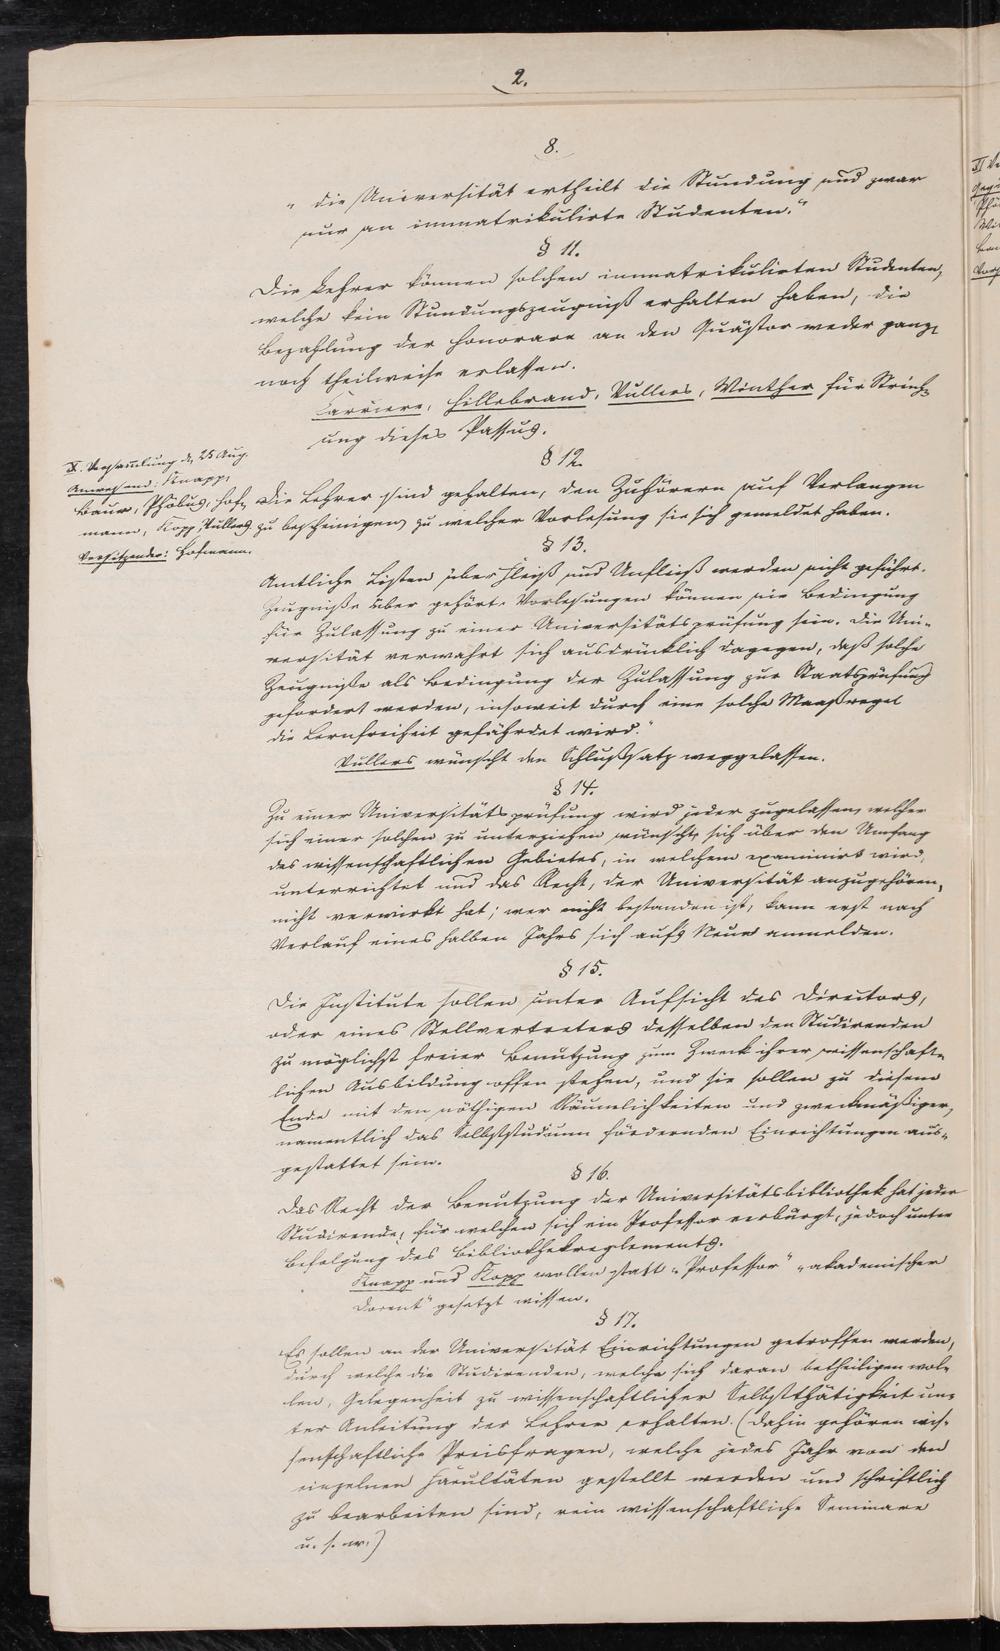 2.
8.
"die Universität ertheilt die Stundung und zwar
nur an immatrikulirte Studenten."
§ 11.
Die Lehrer können solchen immatrikulirten Studenten,
welche kein Stundungszeugniß erhalten haben, die
Bezahlung der Honorare an den Quästor weder ganz
noch theilweise erlassen.
Carriere, Hillebrand, Vullers, Winther für Streich-
ung dieses Passus.
X. Versammlung d. 25 Aug.
Anwesend: Knapp,
Baur, Phöbus, Hof-
mann, Kopp, Vullers
Vorsitzender: Hofmann.
§ 12.
Die Lehrer sind gehalten, den Zuhörern auf Verlangen
zu bescheinigen, zu welcher Vorlesung sie sich gemeldet haben.
§ 13.
Amtliche Listen über Fleiß und Unfleiß werden nicht geführt.
Zeugnisse über gehörte Vorlesungen können nie Bedingung
für Zulassung zu einer Universitätsprüfung sein. Die Uni-
versität verwahrt sich ausdrücklich dagegen, daß solche
Zeugniße als Bedingung der Zulassung zur Staatsprüfung
gefordert werden, insoweit durch eine solche Maaßregel
die Lernfreiheit gefährdet wird."
Vullers wünscht den Schlußsatz weggelassen.
§ 14.
Zu einer Universitätsprüfung wird jeder zugelassen, welcher
sich einer solchen zu unterziehen wünscht, sich über den Umfang
des wissenschaftlichen Gebietes, in welchem examinirt wird,
unterrichtet und das Recht, der Universität anzugehören,
nicht verwirkt hat; wer nicht bestanden ist, kann erst nach
Verlauf eines halben Jahrs sich aufs Neue anmelden.
§ 15.
Die Institute sollen unter Aufsicht des Directors,
oder eines Stellvertreters desselben den Studirenden
zu möglichst freier Benutzung zum Zweck ihrer wissenschaft-
lichen Ausbildung offen stehen, und sie sollen zu diesem
Ende mit den nöthigen Räumlichkeiten und zweckmäßigen,
namentlich das Selbststudium fördernden Einrichtungen aus-
gestattet sein.
§ 16.
Das Recht der Benutzung der Universitätsbibliothek hat jeder
Studirende, für welchen sich ein Professor verbürgt, jedoch unter
Befolgung des Bibliothekreglements.
Knapp und Kopp wollen statt "Professor" "akademischer
Docent" gesetzt wissen.
§ 17.
Es sollen an der Universität Einrichtungen getroffen werden,
durch welche die Studirenden, welche sich daran betheiligen wol-
len, Gelegenheit zu wissenschaftlicher Selbstthätigkeit un-
ter Anleitung der Lehrer erhalten. (Dahin gehören wis-
senschaftliche Preisfragen, welche jedes Jahr von den
einzelnen Facultäten gestellt werden und schriftlich
zu bearbeiten sind, rein wissenschaftliche Seminare
u. s. w.)